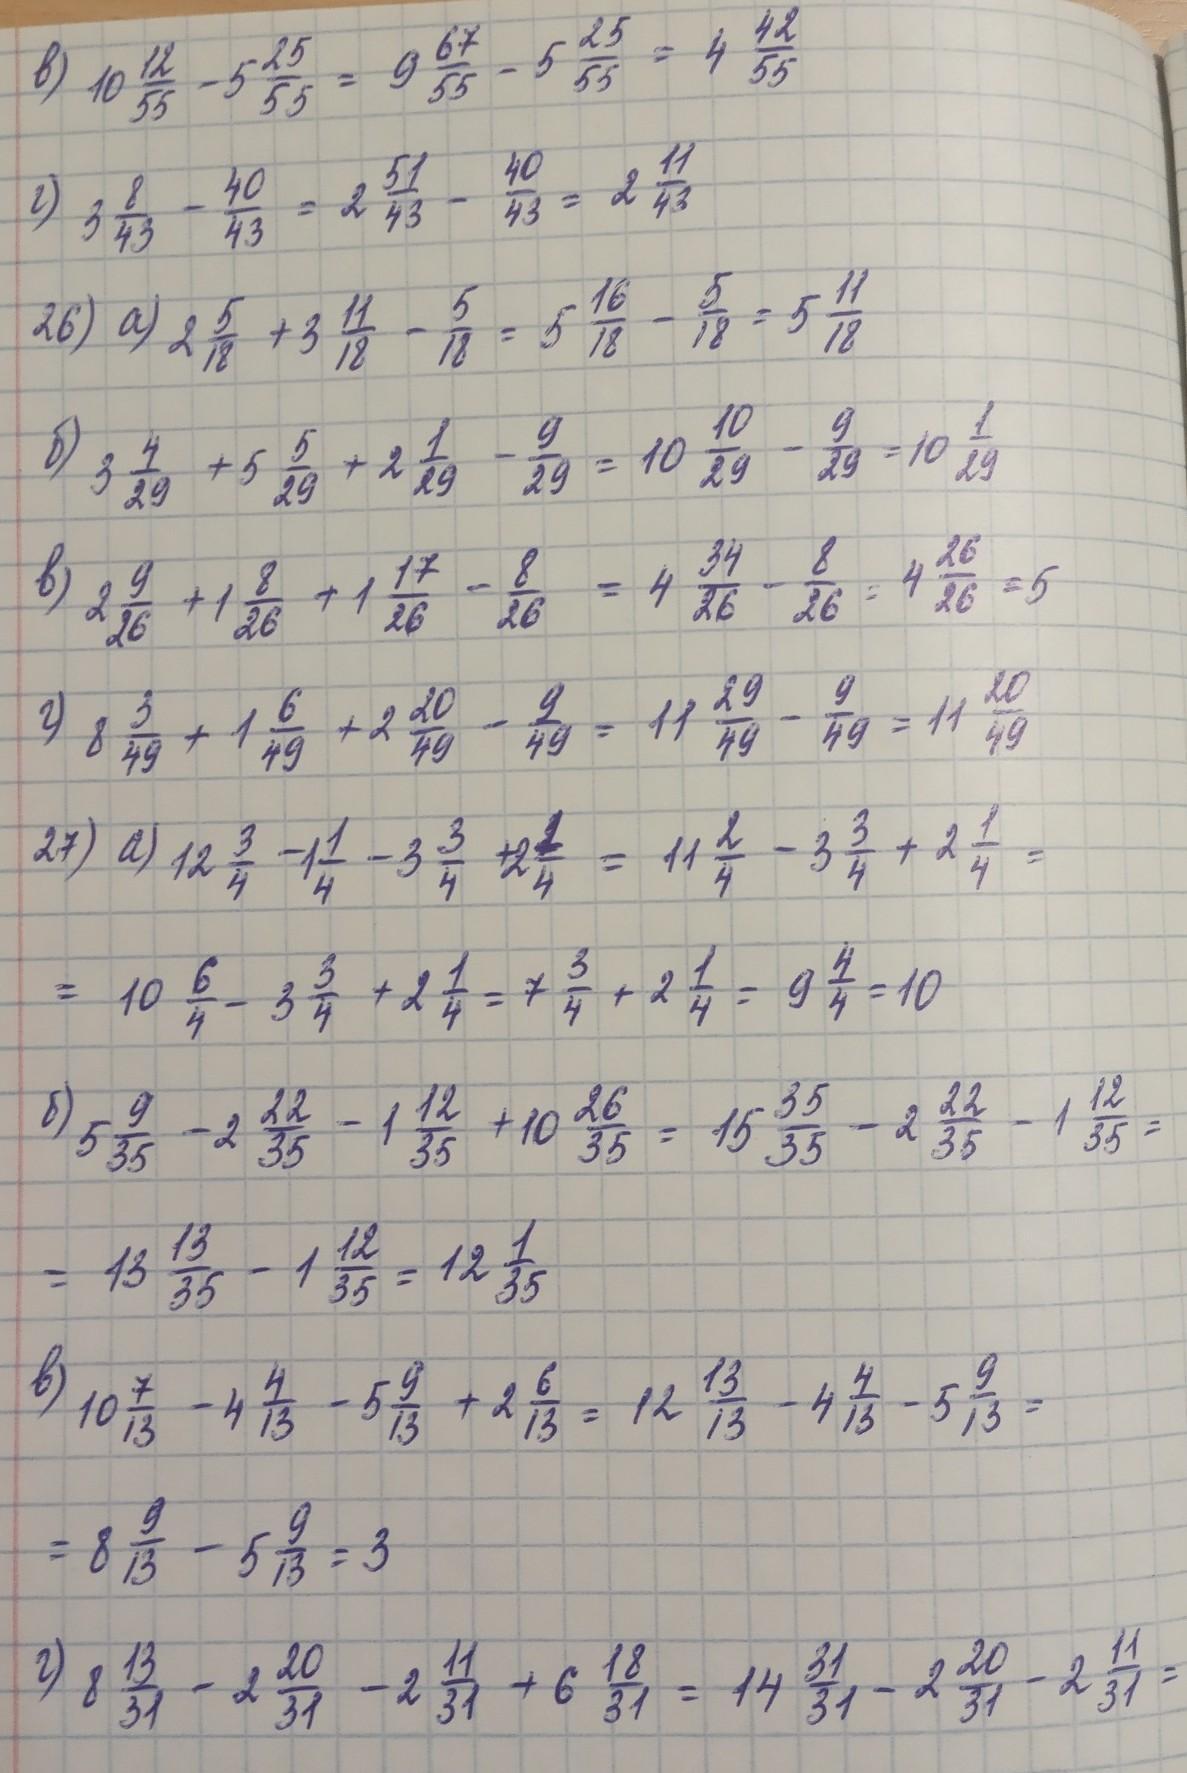 в) 10 12/55 - 5 25/55 = 9 67/55 - 5 25/55 = 4 42/55
г) 3 8/43 - 40/43 = 2 51/43 - 40/43 = 2 11/43
26) а) 2 5/18 + 3 11/18 - 5/18 = 5 16/18 - 5/18 = 5 11/18
б) 3 4/29 + 5 5/29 + 2 1/29 - 9/29 = 10 10/29 - 9/29 = 10 1/29
в) 2 9/26 + 1 8/26 + 1 17/26 - 8/26 = 4 34/26 - 8/26 = 4 26/26 = 5
г) 8 3/49 + 1 6/49 + 2 20/49 - 9/49 = 11 29/49 - 9/49 = 11 20/49
27) а) 12 3/4 - 1 1/4 - 3 3/4 + 2 1/4 = 11 2/4 - 3 3/4 + 2 1/4 =
= 10 6/4 - 3 3/4 + 2 1/4 = 7 3/4 + 2 1/4 = 9 4/4 = 10
б) 5 9/35 - 2 22/35 - 1 12/35 + 10 26/35 = 15 35/35 - 2 22/35 - 1 12/35 =
= 13 13/35 - 1 12/35 = 12 1/35
в) 10 7/13 - 4 4/13 - 5 9/13 + 2 6/13 = 12 13/13 - 4 4/13 - 5 9/13 =
= 8 9/13 - 5 9/13 = 3
г) 8 13/31 - 2 20/31 - 2 11/31 + 6 18/31 = 14 31/31 - 2 20/31 - 2 11/31 =